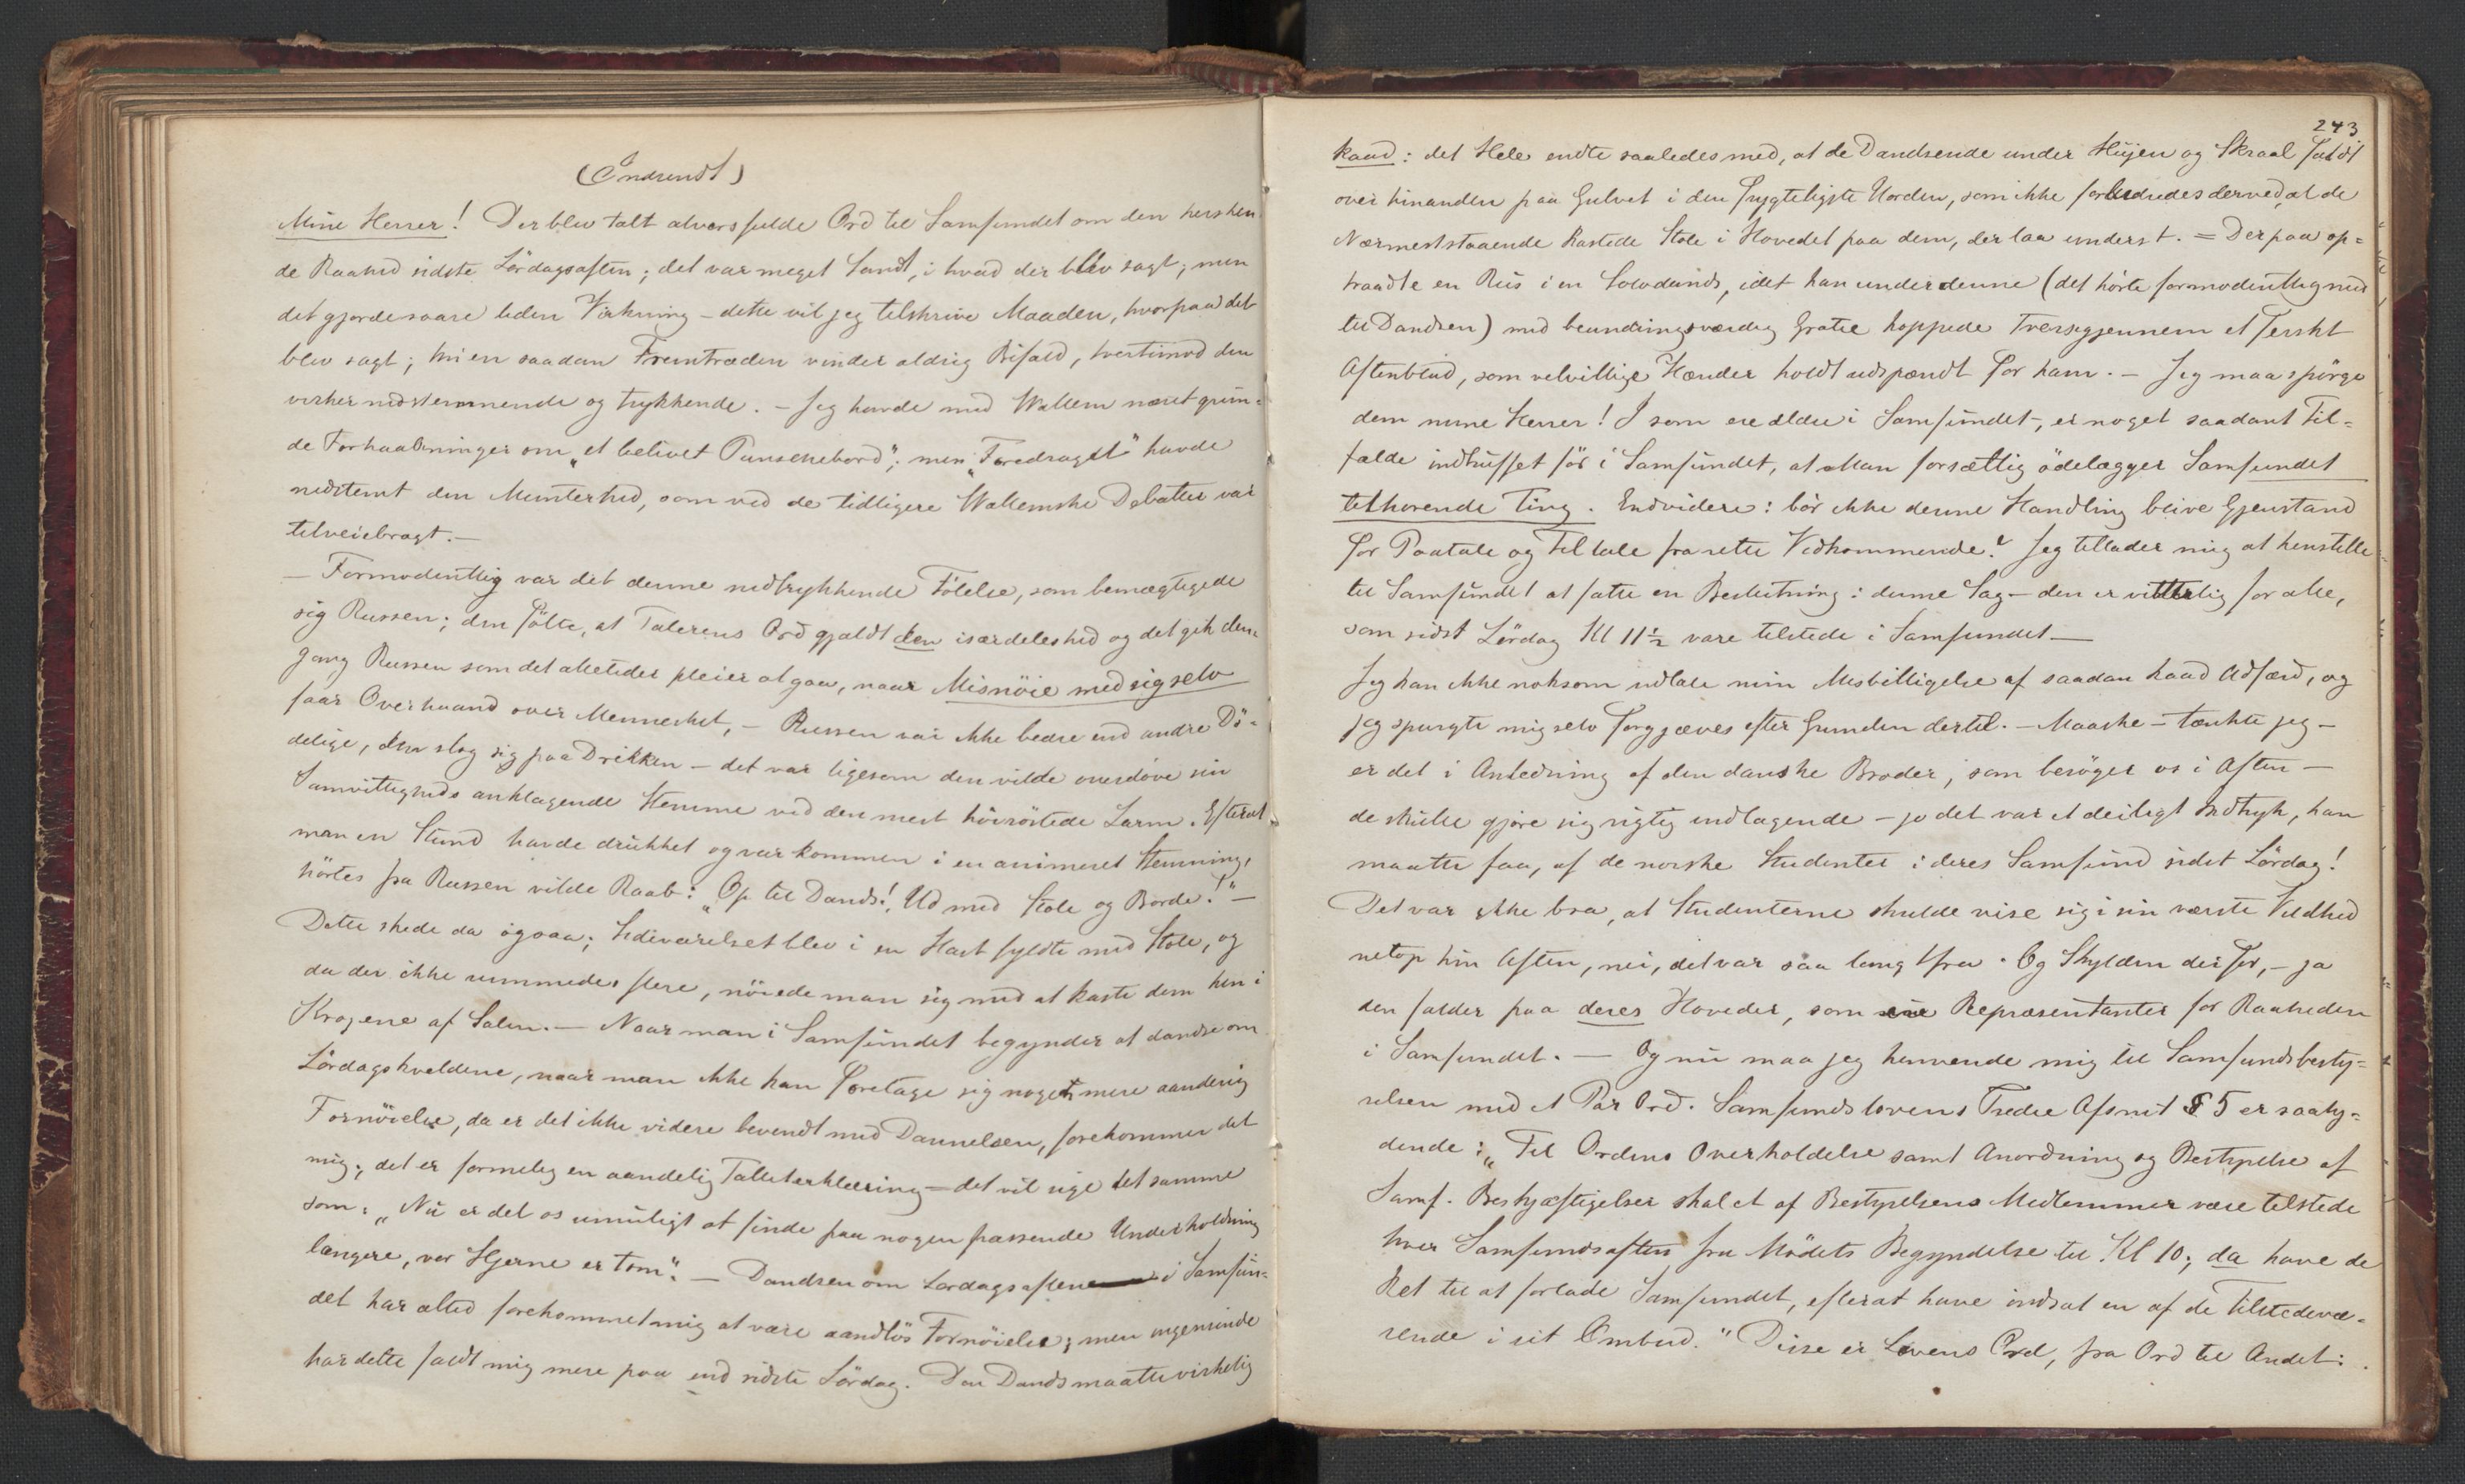 (Indsendt)
Mine Herrer! Der blev talt alvorsfulde Ord til Samfundet om den hersken
de Raahed sidste Lördagsaften; det var meget Sandt, i hvad der blev sagt; men
det gjorde saare liden Virkning – dette vil jeg tilskrive Maaden, hvorpaa det
blev sagt; thi en saadan Fremtræden vinder aldrig Bifald, tvertimod den
virker nedstemmende og trykkende. – Jeg havde med Wallem næret grun=
de Forhaabninger om „et belivet Punschebord"; men „Foredraget" havde
nedstemt den Munterhed, som ved de tidligere Wallemske Debatter var
tilveiebragt. –
– Formodentlig var det denne nedtrykkende Følelse, som bemægtigede
sig Russen; den fölte, at Talerens Ord gjaldt den isærdeleshed og det gik den=
gang Russen som det altetider pleier at gaa, naar Misnöie med sig selv
faar Overhaand over Mennesket, – Russen var ikke bedre end andre Dö=
delige, den slog sig paa Drikken – det var ligesom den vilde overdöve sin
Samvittigheds anklagende Stemme ved den mest höiröstede Larm. Efterat
man en Stund havde drukket og var kommen i en animeret Stemning,
hörtes fra Russen vilde Raab: „Op til Dands! Ud med Stole og Borde!" –
Dette skede da ogsaa; Sideværelset blev i en Hast fyldte med Stole, og
da der ikke rummedes flere, nöiede man sig med at kaste dem hen i
Krogene af Salen. – Naar man i Samfundet begynder at dandse om
Lördagskveldene, naar man ikke kan foretage sig noget mere aanderig
Fornöielse, da er det ikke videre bevendt med Dannelsen, forekommer det
mig; det er formelig en aandelig Falliterklæring – det vil sige det samme
som: „Nu er det os umuligt at finde paa nogen passende Underholdning
længere, vor Hjerne er tom". – Dandsen om Lørdagsaftene i Samfun=
det har altid forekommet mig at være aandlös Fornöielse; men ingensinde
har dette faldt mig mere paa end sidste Lördag. Den Dands maatte virkelig
243
kaad: det Hele endte saaledes med, at de Dandsende under Hujen og Skraal faldt
over hinanden paa Gulvet i den frygteligste Uorden, som ikke forbedredes derved, at de
Nærmeststaaende kastede Stole i Hovedet paa dem, der laa underst. = Derpaa op=
traadte en Rus i en Solodands, idet han under denne (det hörte formodentlig med
til Dandsen) med beundringsværdig Gratie hoppede tversigjennem et ferskt
Aftenblad, som velvillige Hænder holdt udspændt for ham. – Jeg maa spörge
dem mine Herrer! I som ere ældre i Samfundet, er noget saadant Til=
fælde indtruffet för i Samfundet, at Man forsætlig ödelægger Samfundet
tilhørende Ting. Endvidere: bör ikke denne Handling blive Gjenstand
for Paatale og Tiltale fra rette Vedkommende? Jeg tillader mig at henstille
til Samfundet at fatte en Beslutning i denne Sag – den er vitterlig for alle,
som sidst Lördag Kl 11½ vare tilstede i Samfundet –
Jeg kan ikke noksom udtale min Misbilligelse af saadan kaad Adfærd, og
jeg spurgte mig selv forgjæves efter Grunden dertil. – Maaske – tænkte jeg –
er det i Anledning af den danske Broder, som besöger os i Aften –
de skulle gjöre sig rigtig indtagende – jo det var et deiligt Indtryk, han
maatte faa, af de norske Studenter i deres Samfund sidst Lördag!
Det var ikke bra, at Studenterne skulde vise sig i sin værste Vildhed
netop hin Aften, nei, det var saa langt fra. Og Skylden derfor, – ja
den falder paa deres Hoveder, som ere Repræsentanter for Raaheden
i Samfundet. – Og nu maa jeg henvende mig til Samfundsbesty=
relsen med et Par Ord. Samfundslovens Tredie Afsnit § 5 er saaly=
dende: „Til Ordens Overholdelse samt Anordning og Bestyrelse af
Samf. Beskjæftigelser skal et af Bestyrelsens Medlemmer være tilstede
hver Samfundsaften fra Mödets Begyndelse til Kl 10; da have de
Ret til at forlade Samfundet, efterat have indsat en af de Tilstedevæ=
rende i sit Ombud." Disse er Lovens Ord, fra Ord til Andet: